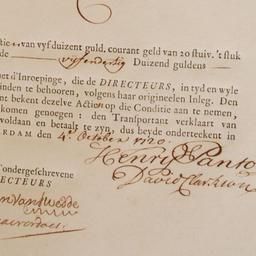 Actie van vyf duizent guld. courant geld van 20 stuiv. 't stuk
de vyfendertig Duizend guldens
met d'Inroepinge, die de DIRECTEURS, in tyd en wyle
vinden te behooren, volgens haar origineelen Inleg. Den
ent bekent dezelve Actien op die Conditie aan te nemen,
komen genoegen: den Transportant verklaart van
voldaan en betaalt te zyn, dus beyde onderteekent in
ERDAM den 4e October 1720.
Henric
d'ondergeschrevene
David
RECTEURS